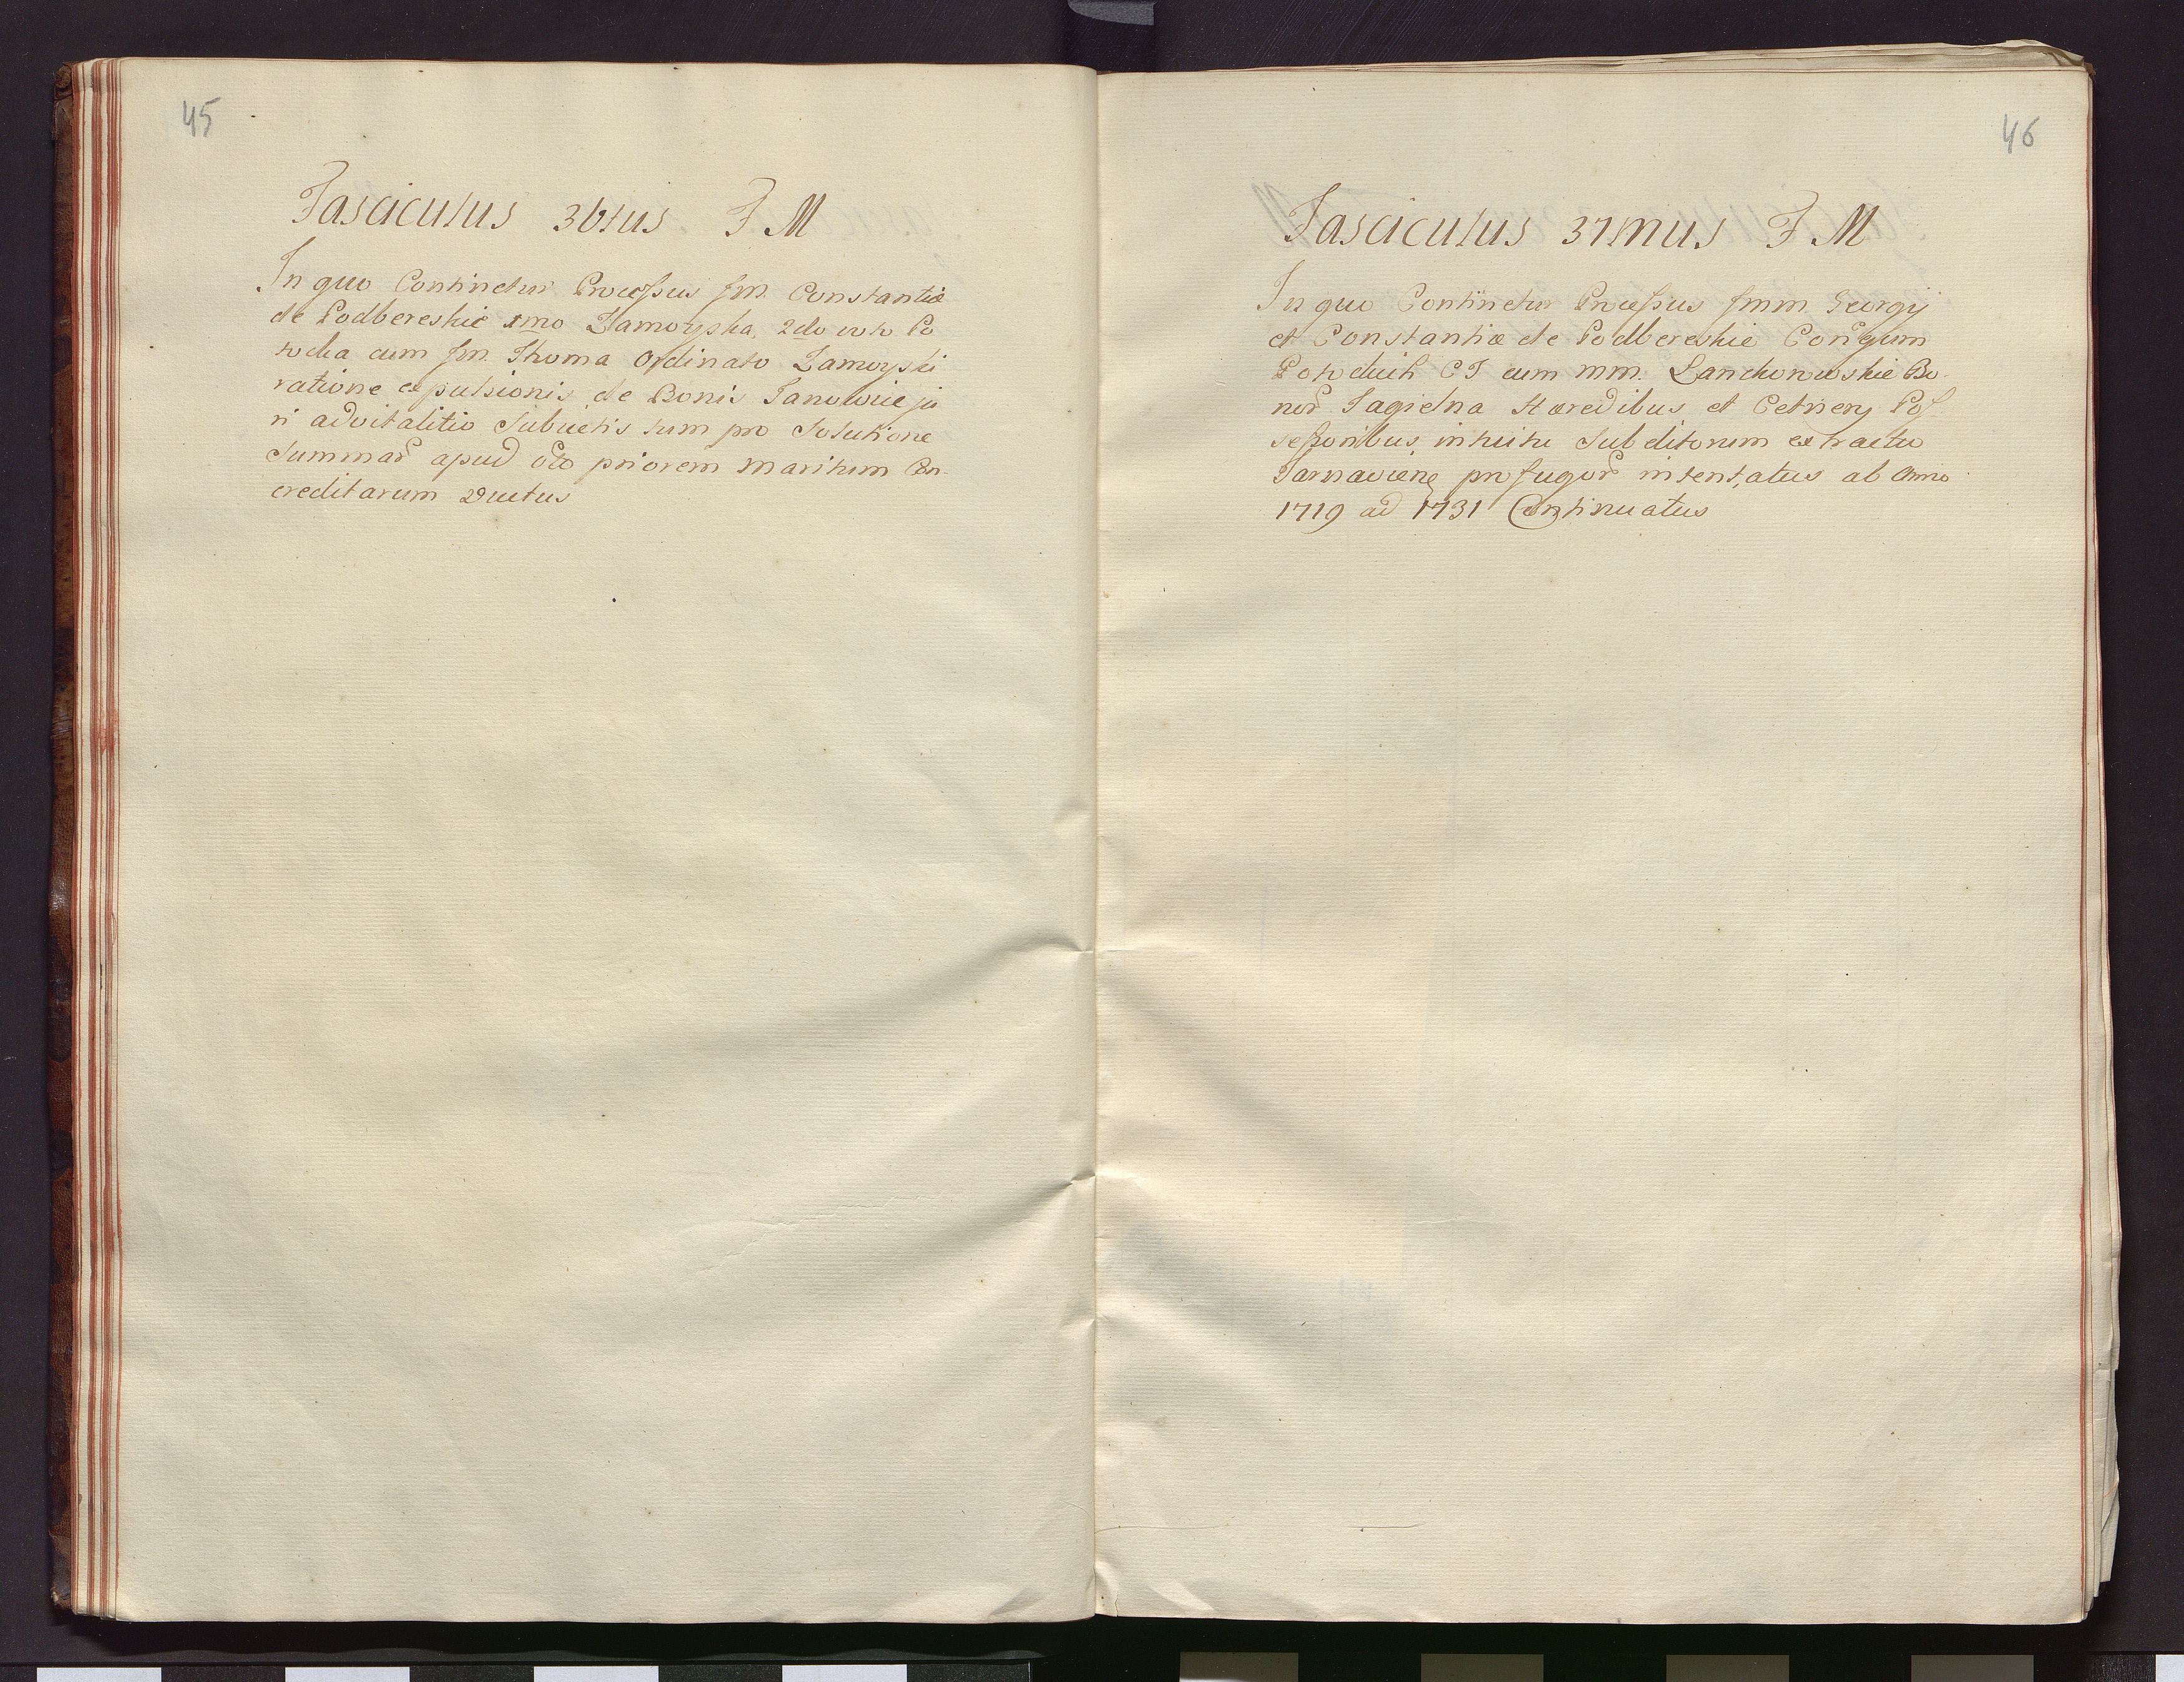 45
Fasciculus 36tus F M
In quo Continetur Processus Jm. Constantiæ
de Podbereskie 1mo Zamoyska, 2do voto Po
tocka cum Jm. Thoma Ordinato Zamoyski
ratione expulsionis de Bonis Janowiie ju
ri advitalitio Subiectis tum pro Solutione
Summar apud priorem maritum Con-
creditarum Ductus
46
Fasciculus 37mus F M
In quo Continetur Processus Jmm. Georgij
et Constantiæ de Podbereskie Conjgum
Potockich CT cum mm. Lanckoronskie Bo-
nor Jagielna Hæredibus et Cetnery Pos
sessoribus, intuitu Subditorum ex tractu
profugor intentatus ab Anno
1719 ad 1731 Continuatus